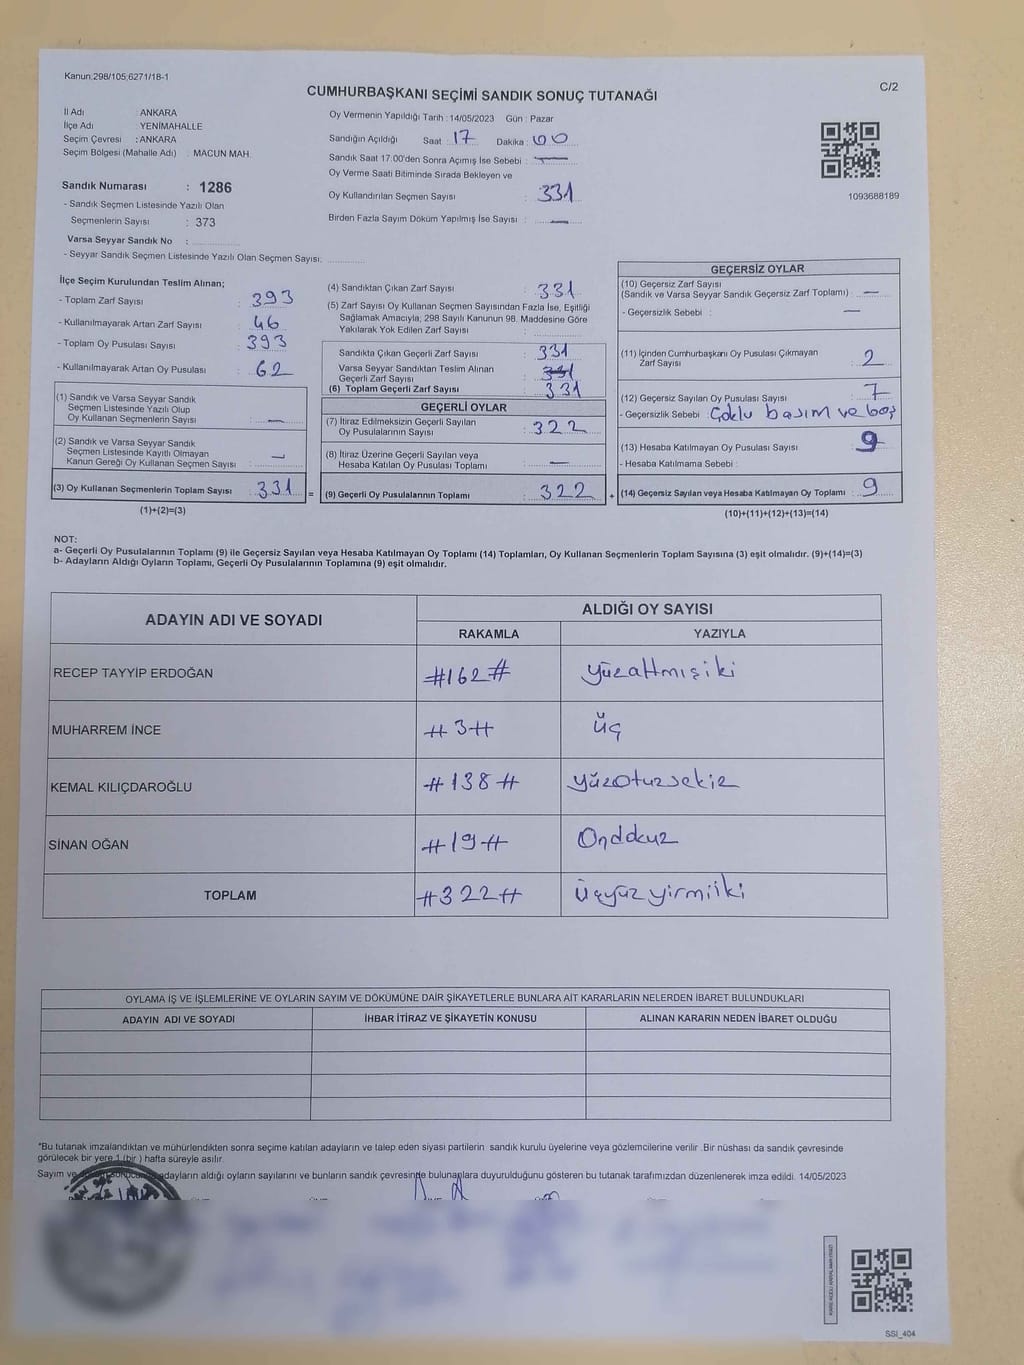 Kanun:298/105;6271/18-1
CUMHURBAŞKANI SEÇİMİ SANDIK SONUÇ TUTANAĞI
C/2
İl Adı : ANKARA
İlçe Adı : YENİMAHALLE
Seçim Çevresi : ANKARA
Seçim Bölgesi (Mahalle Adı) : MACUN MAH.
Sandık Numarası : 1286
- Sandık Seçmen Listesinde Yazılı Olan
Seçmenlerin Sayısı : 373
Varsa Seyyar Sandık No :
- Seyyar Sandık Seçmen Listesinde Yazılı Olan Seçmen Sayısı:
Oy Vermenin Yapıldığı Tarih : 14/05/2023 Gün : Pazar
Sandığın Açıldığı Saat : 17 Dakika : 00
Sandık Saat 17:00'den Sonra Açımış İse Sebebi : —
Oy Verme Saati Bitiminde Sırada Bekleyen ve
Oy Kullandırılan Seçmen Sayısı : 331
Birden Fazla Sayım Döküm Yapılmış İse Sayısı : —
1093688189
İlçe Seçim Kurulundan Teslim Alınan;
- Toplam Zarf Sayısı : 393
- Kullanılmayarak Artan Zarf Sayısı : 46
- Toplam Oy Pusulası Sayısı : 393
- Kullanılmayarak Artan Oy Pusulası : 62
(1) Sandık ve Varsa Seyyar Sandık
Seçmen Listesinde Yazılı Olup
Oy Kullanan Seçmenlerin Sayısı : —
(2) Sandık ve Varsa Seyyar Sandık
Seçmen Listesinde Kayıtlı Olmayan
Kanun Gereği Oy Kullanan Seçmen Sayısı : —
(3) Oy Kullanan Seçmenlerin Toplam Sayısı : 331 =
(1)+(2)=(3)
(4) Sandıktan Çıkan Zarf Sayısı : 331
(5) Zarf Sayısı Oy Kullanan Seçmen Sayısından Fazla İse, Eşitliği
Sağlamak Amacıyla; 298 Sayılı Kanunun 98. Maddesine Göre
Yakılarak Yok Edilen Zarf Sayısı :
Sandıkta Çıkan Geçerli Zarf Sayısı : 331
Varsa Seyyar Sandıktan Teslim Alınan
Geçerli Zarf Sayısı : 331
(6) Toplam Geçerli Zarf Sayısı : 331
GEÇERLİ OYLAR
(7) İtiraz Edilmeksizin Geçerli Sayılan
Oy Pusulalarının Sayısı : 322
(8) İtiraz Üzerine Geçerli Sayılan veya
Hesaba Katılan Oy Pusulası Toplamı : —
(9) Geçerli Oy Pusulalarının Toplamı : 322 +
GEÇERSİZ OYLAR
(10) Geçersiz Zarf Sayısı
(Sandık ve Varsa Seyyar Sandık Geçersiz Zarf Toplamı) : —
- Geçersizlik Sebebi : —
(11) İçinden Cumhurbaşkanı Oy Pusulası Çıkmayan
Zarf Sayısı : 2
(12) Geçersiz Sayılan Oy Pusulası Sayısı : 7
- Geçersizlik Sebebi : Çoklu basım ve boş
(13) Hesaba Katılmayan Oy Pusulası Sayısı : 9
- Hesaba Katılmama Sebebi :
(14) Geçersiz Sayılan veya Hesaba Katılmayan Oy Toplamı : 9
(10)+(11)+(12)+(13)=(14)
NOT:
a- Geçerli Oy Pusulalarının Toplamı (9) ile Geçersiz Sayılan veya Hesaba Katılmayan Oy Toplamı (14) Toplamları, Oy Kullanan Seçmenlerin Toplam Sayısına (3) eşit olmalıdır. (9)+(14)=(3)
b- Adayların Aldığı Oyların Toplamı, Geçerli Oy Pusulalarının Toplamına (9) eşit olmalıdır.
ADAYIN ADI VE SOYADI
ALDIĞI OY SAYISI
RAKAMLA YAZIYLA
RECEP TAYYİP ERDOĞAN #162# Yüzaltmışiki
MUHARREM İNCE #3# Üç
KEMAL KILIÇDAROĞLU #138# Yüzotuzsekiz
SİNAN OĞAN #19# Ondokuz
TOPLAM #322# Üçyüzyirmiiki
OYLAMA İŞ VE İŞLEMLERİNE VE OYLARIN SAYIM VE DÖKÜMÜNE DAİR ŞİKAYETLERLE BUNLARA AİT KARARLARIN NELERDEN İBARET BULUNDUKLARI
ADAYIN ADI VE SOYADI İHBAR İTİRAZ VE ŞİKAYETİN KONUSU ALINAN KARARIN NEDEN İBARET OLDUĞU
*Bu tutanak imzalandıktan ve mühürlendikten sonra seçime katılan adayların ve talep eden siyasi partilerin sandık kurulu üyelerine veya gözlemcilerine verilir. Bir nüshası da sandık çevresinde
görülecek bir yere 1 (bir) hafta süreyle asılır.
Sayım ve adayların aldığı oyların sayılarını ve bunların sandık çevresinde bulunanlara duyurulduğunu gösteren bu tutanak tarafımızdan düzenlenerek imza edildi. 14/05/2023
SSI_404